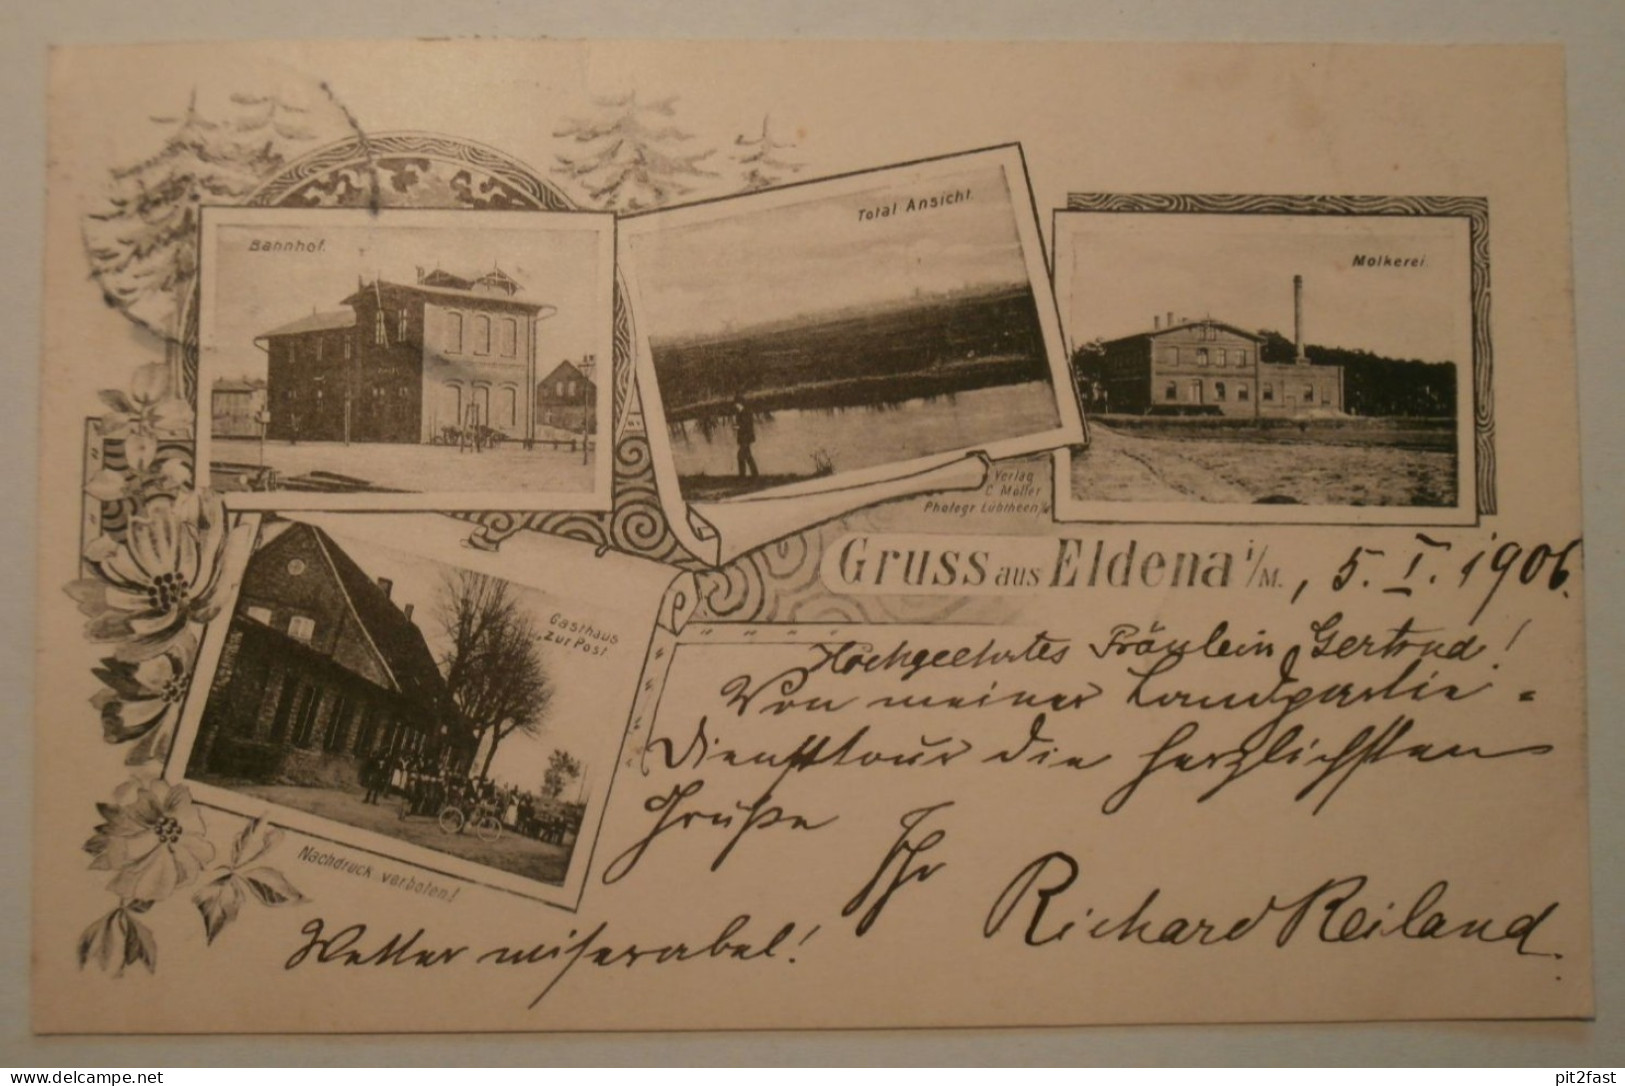 Bahnhof.
Total Ansicht.
Molkerei.
Verlag
C Möller
Photogr Lübtheen i/M
Gruss aus Eldena i/M., 5. I. 1906.
Gasthaus
„Zur Post
Hochgeehrtes Fräulein Gertrud!
Von meiner Landpartie-
Diensttour die herzlichsten
Grüße
Ihr
Richard Reiland.
Nachdruck verboten!
Wetter miserabel!
delcampe.net
pit2fast